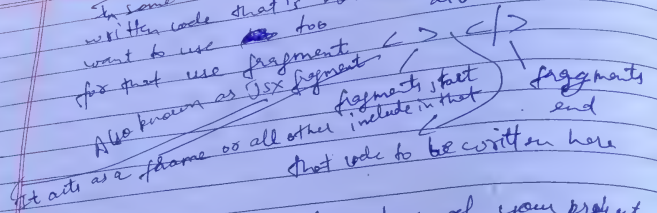 In some
written code that is
want to use too
for that use fragment < > , </>
Also known as JSX fragment
fragments start
fragments
end
It acts as a frame or all other include in that
that code to be written here
of your